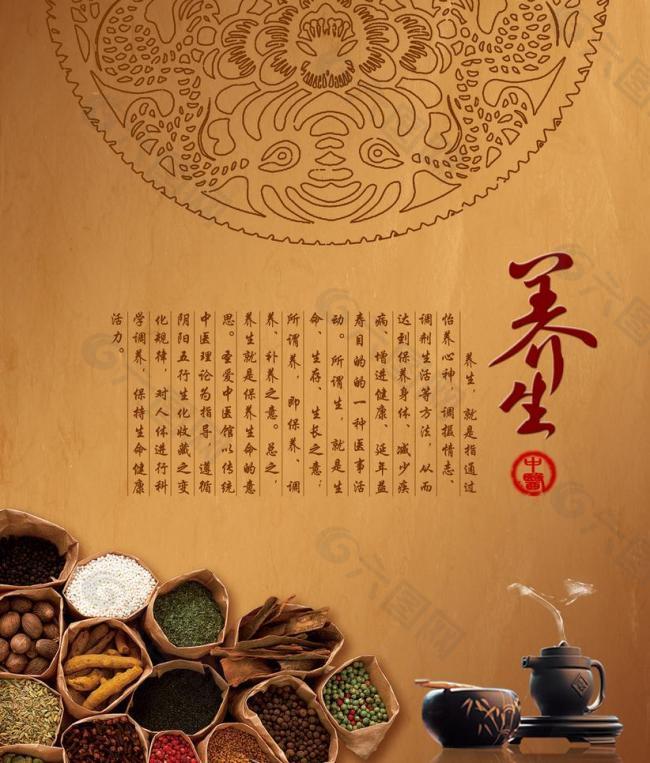 养生
中醫
养生，就是指通过
怡养心神，调摄情志、
调剂生活等方法，从而
达到保养身体、减少疾
病、增进健康、延年益
寿目的的一种医事活
动。所谓生，就是生
命、生存、生长之意；
所谓养，即保养、调
养、补养之意。总之，
养生就是保养生命的意
思。圣爱中医馆以传统
中医理论为指导，遵循
阴阳五行生化收藏之变
化规律，对人体进行科
学调养，保持生命健康
活力。
六图网